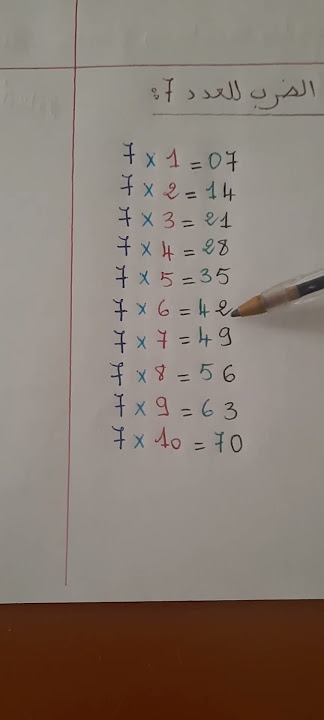 الضرب للعدد 7:
7 x 1 = 07
7 x 2 = 14
7 x 3 = 21
7 x 4 = 28
7 x 5 = 35
7 x 6 = 42
7 x 7 = 49
7 x 8 = 56
7 x 9 = 63
7 x 10 = 70